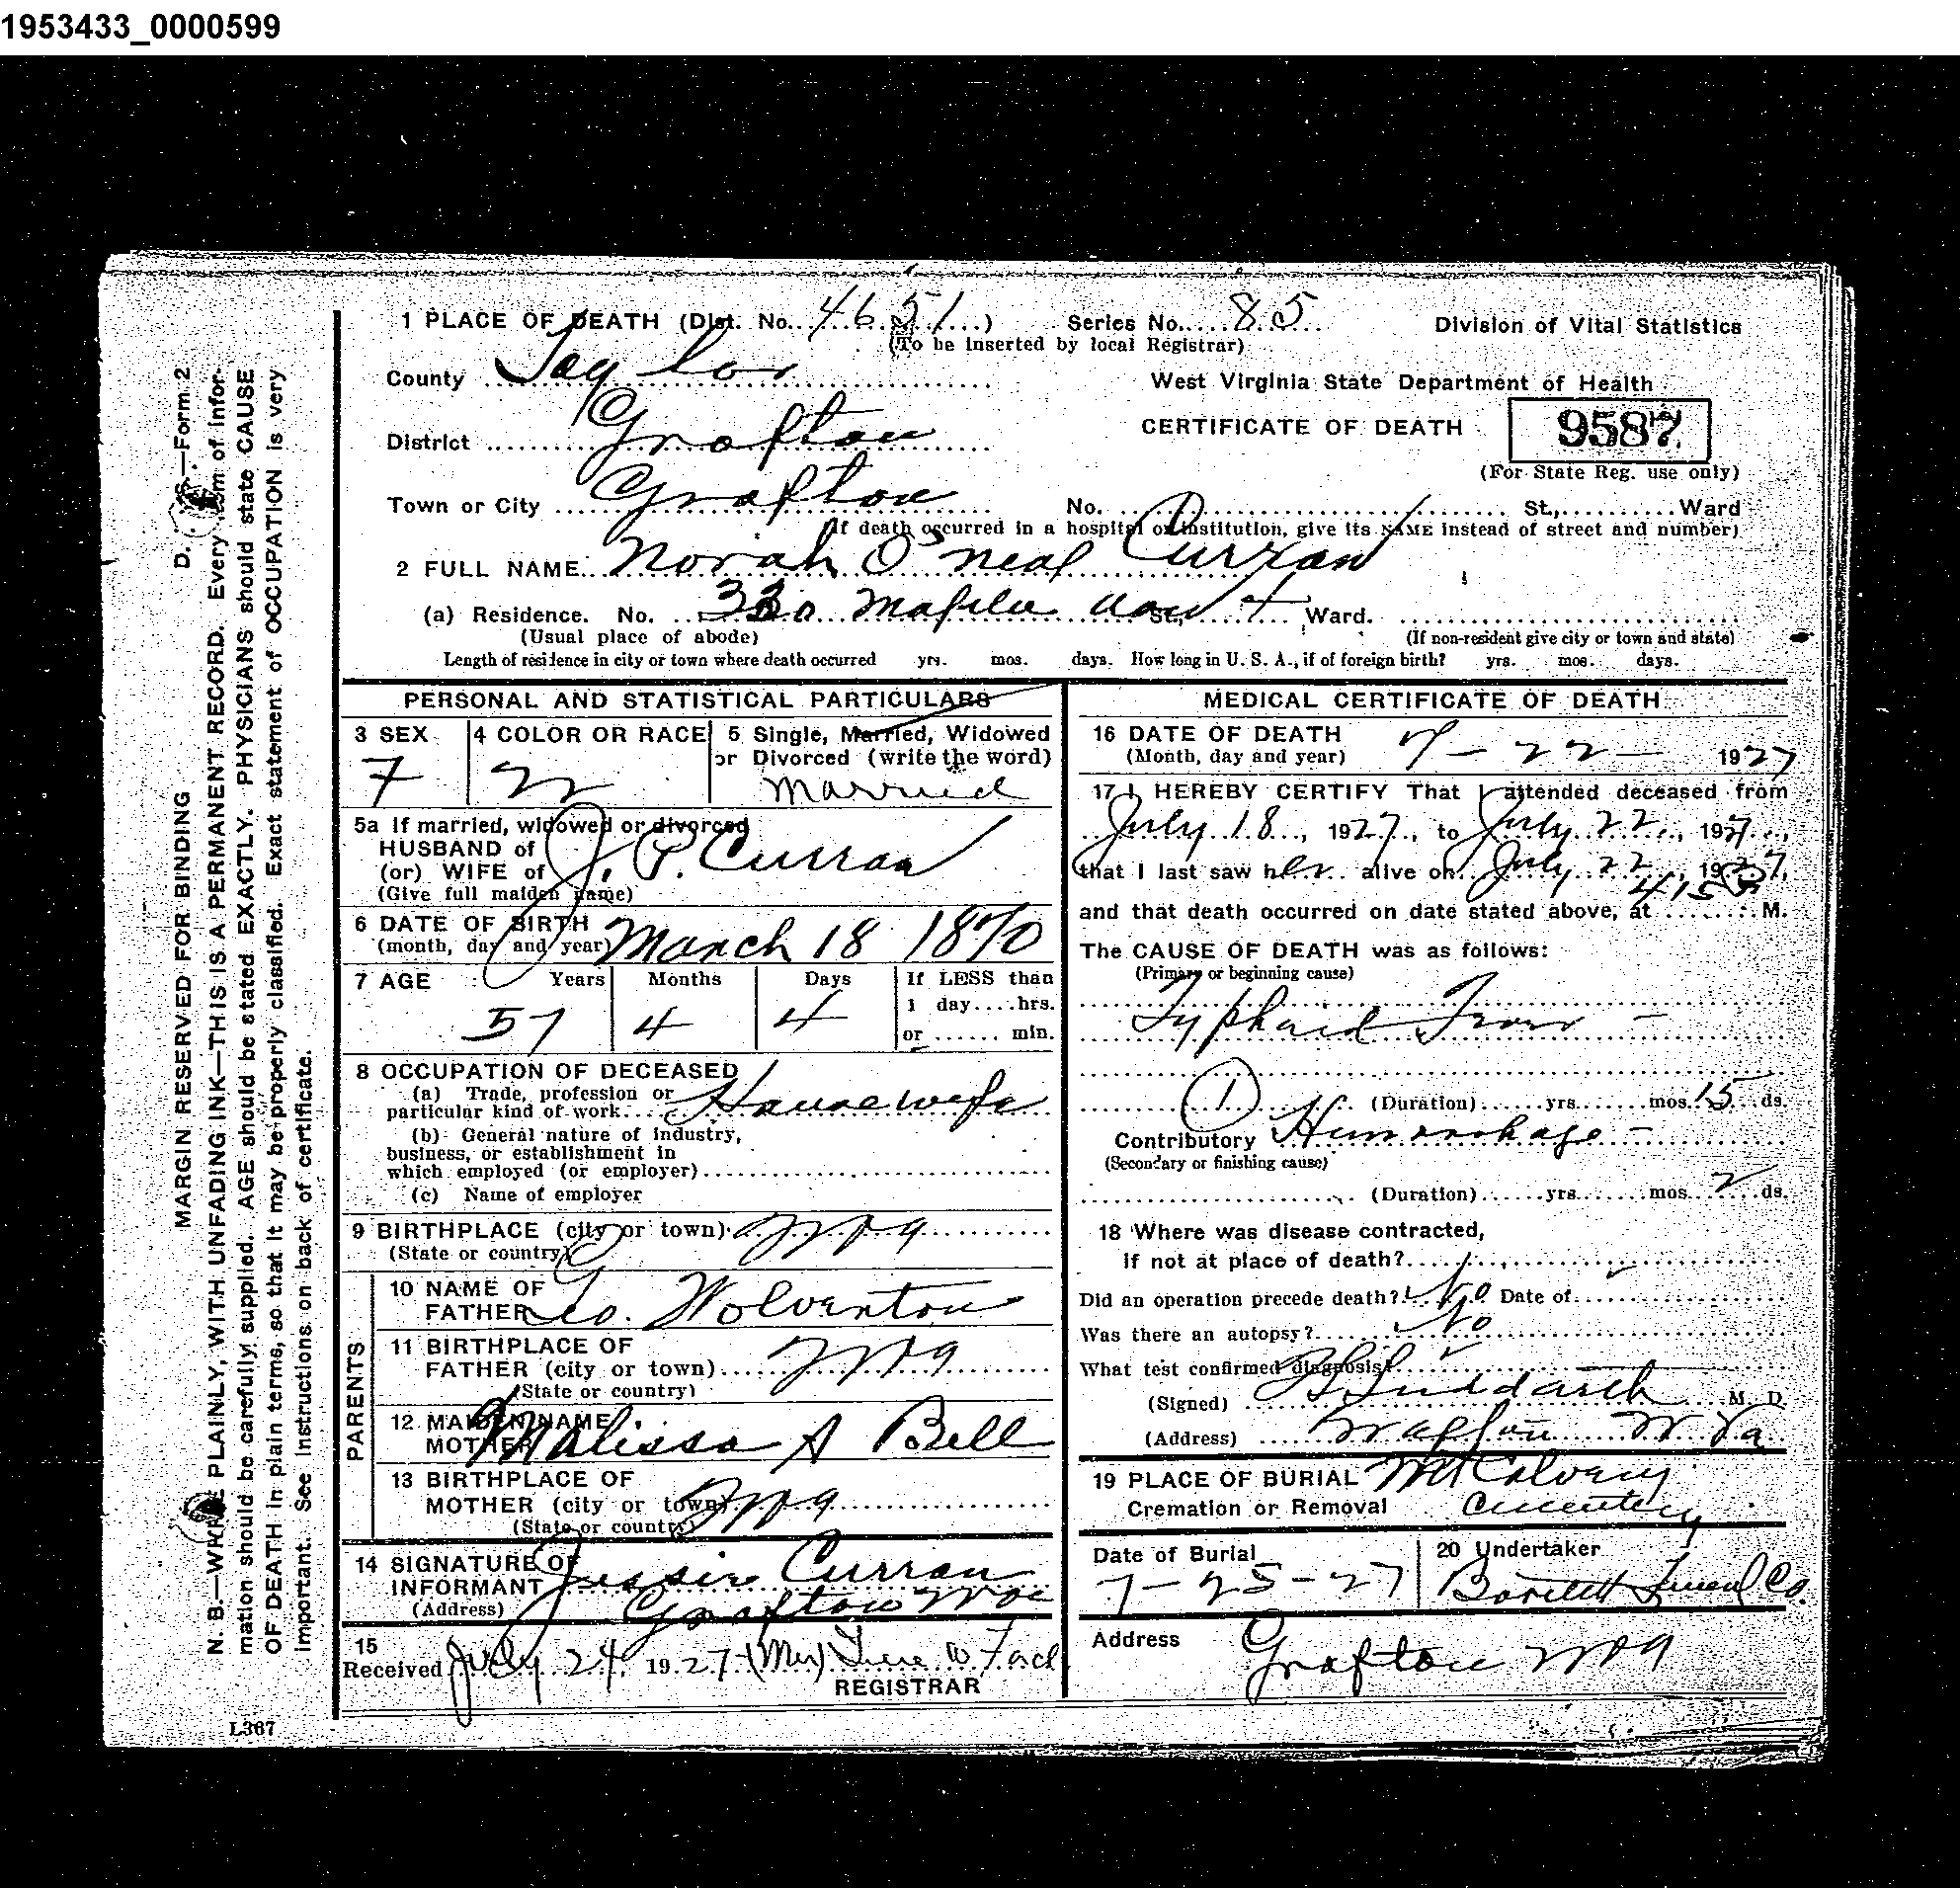 1953433_0000599
1 PLACE OF DEATH (Dist. No. 4651) Series No. 85 Division of Vital Statistics
(To be inserted by local Registrar)
County Taylor West Virginia State Department of Health
District Grafton CERTIFICATE OF DEATH 9587
(For State Reg. use only)
Town or City Grafton No. St., Ward
(If death occurred in a hospital or institution, give its NAME instead of street and number)
2 FULL NAME Norah O'neal Curran
(a) Residence. No. Maple St., 4 Ward.
(Usual place of abode) (If non-resident give city or town and state)
Length of residence in city or town where death occurred yrs. mos. days. How long in U. S. A., if of foreign birth? yrs. mos. days.
PERSONAL AND STATISTICAL PARTICULARS
3 SEX 4 COLOR OR RACE 5 Single, Married, Widowed
or Divorced (write the word)
F W Married
5a If married, widowed or divorced
HUSBAND of
(or) WIFE of J. P. Curran
(Give full maiden name)
6 DATE OF BIRTH
(month, day and year) March 18 1870
7 AGE Years Months Days If LESS than
1 day....hrs.
57 4 4 or ...... min.
8 OCCUPATION OF DECEASED
(a) Trade, profession or
particular kind of work Housewife
(b) General nature of industry,
business, or establishment in
which employed (or employer)
(c) Name of employer
9 BIRTHPLACE (city or town) WVa
(State or country)
PARENTS
10 NAME OF
FATHER Geo. Wolverton
11 BIRTHPLACE OF
FATHER (city or town) WVa
(State or country)
12 MAIDEN NAME
MOTHER Malissa A Bell
13 BIRTHPLACE OF
MOTHER (city or town) WVa
(State or country)
14 SIGNATURE OF
INFORMANT Jessie Curran
(Address) Grafton WVa
15
Received July 24, 1927 (Mrs)
REGISTRAR
MEDICAL CERTIFICATE OF DEATH
16 DATE OF DEATH
(Month, day and year) 7-22- 1927
17 I HEREBY CERTIFY That I attended deceased from
July 18, 1927, to July 22, 1927,
that I last saw her alive on July 22, 1927,
and that death occurred on date stated above, at 415 P M.
The CAUSE OF DEATH was as follows:
(Primary or beginning cause)
Typhoid Fever -
1 (Duration) yrs. mos. 15 ds.
Contributory Hemorrhage -
(Secondary or finishing cause)
(Duration) yrs. mos. 2 ds.
18 Where was disease contracted,
if not at place of death?
Did an operation precede death? No Date of
Was there an autopsy? No
What test confirmed diagnosis?
(Signed) Suddarth M. D.
(Address) Grafton W Va
19 PLACE OF BURIAL Mt Calvary
Cremation or Removal Cemetery
Date of Burial 20 Undertaker
7-25-27 Funeral Co.
Address Grafton WVa
MARGIN RESERVED FOR BINDING D. S.—Form 2
N. B.—WRITE PLAINLY, WITH UNFADING INK—THIS IS A PERMANENT RECORD. Every item of infor-
mation should be carefully supplied. AGE should be stated EXACTLY. PHYSICIANS should state CAUSE
OF DEATH in plain terms, so that it may be properly classified. Exact statement of OCCUPATION is very
important. See instructions on back of certificate.
L367